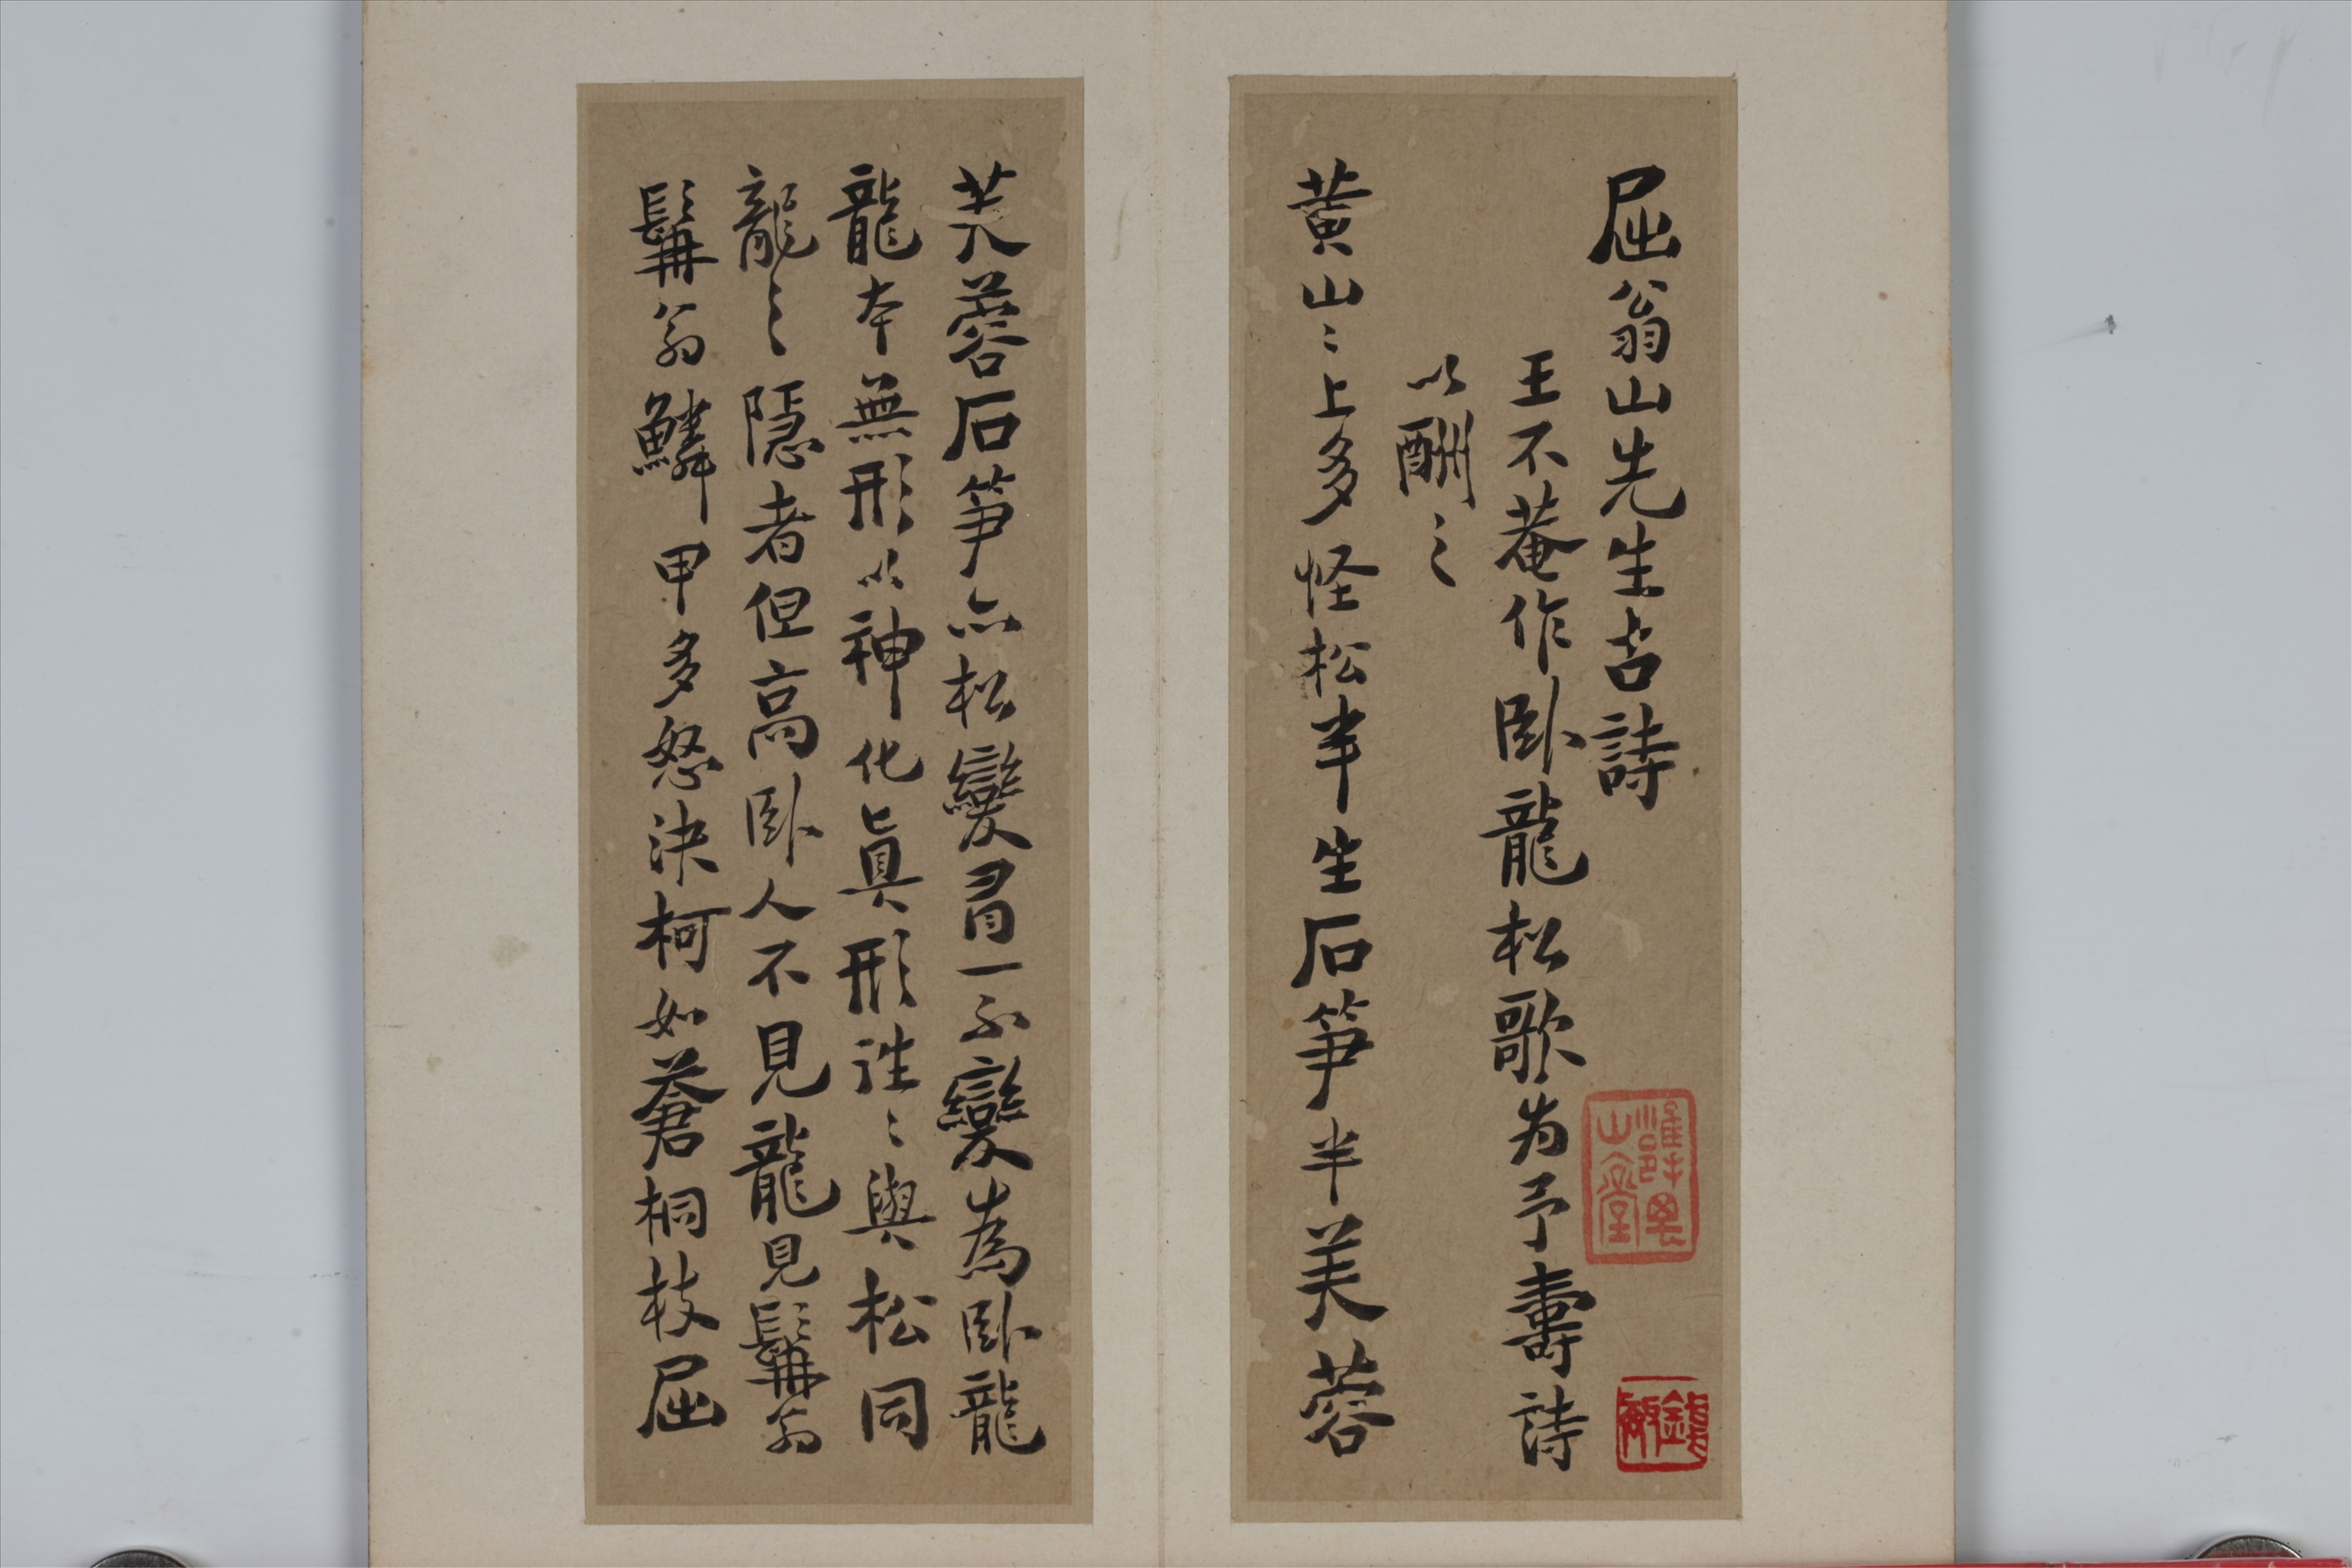 屈翁山先生古詩
王不菴作臥龍松歌为予壽詩
以酬之
黄山〻上多怪松半生石笋半芙蓉
芙蓉石笋亦松變胥一不變為臥龍
龍本無形以神化眞形往〻與松同
龍之隱者但高臥人不見龍見髯翁
髯翁鱗甲多怒决柯如蒼桐枝屈